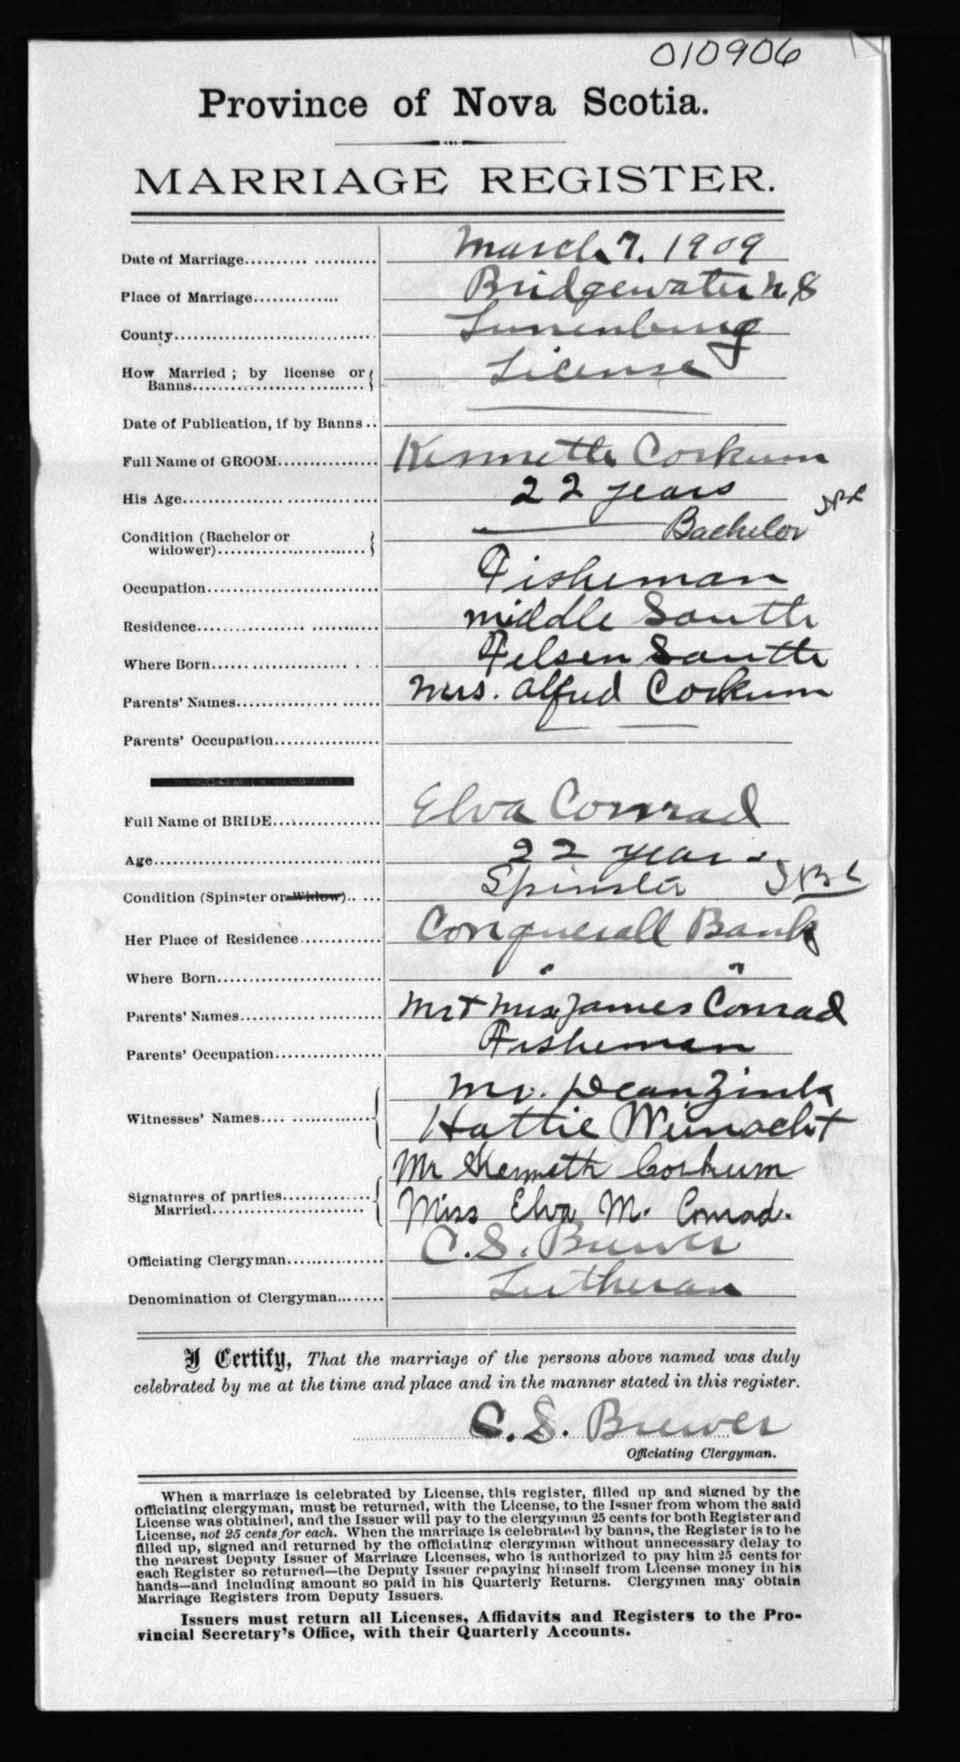 010906
Province of Nova Scotia.
MARRIAGE REGISTER.
Date of Marriage.......... .......... March 7. 1909
Place of Marriage............. Bridgewater N S
County............................... Lunenburg
How Married ; by license or
Banns.................. ......... License
Date of Publication, if by Banns ..
Full Name of GROOM................ Kenneth Corkum
His Age....................... ............ 22 years
Condition (Bachelor or
widower)......................... Bachelor
Occupation............................ Fisheman
Residence................. ........... Middle South
Where Born...... ................ . . . Felsen South
Parents' Names................. ....... Mrs. Alfred Corkum
Parents' Occupation.................
Full Name of BRIDE................. Elva Conrad
Age.................................... 22 years
Condition (Spinster or Widow).. .... Spinster
Her Place of Residence............. Conquerall Bank
Where Born........................... " "
Parents' Names................ ........ Mr + Mrs James Conrad
Parents' Occupation................. Fisheman
Witnesses' Names.... ............... Mr. Dean Zink
Hattie Weinacht
Signatures of parties..............
Married........................ Mr Kenneth Corkum
Miss Elva M. Conrad.
Officiating Clergyman............... C. S. Brewer
Denomination of Clergyman........ Lutheran
I Certify, That the marriage of the persons above named was duly
celebrated by me at the time and place and in the manner stated in this register.
C. S. Brewer
Officiating Clergyman.
When a marriage is celebrated by License, this register, filled up and signed by the
officiating clergyman, must be returned, with the License, to the Issuer from whom the said
License was obtained, and the Issuer will pay to the clergyman 25 cents for both Register and
License, not 25 cents for each. When the marriage is celebrated by banns, the Register is to be
filled up, signed and returned by the officiating clergyman without unnecessary delay to
the nearest Deputy Issuer of Marriage Licenses, who is authorized to pay him 25 cents for
each Register so returned—the Deputy Issuer repaying himself from License money in his
hands—and including amount so paid in his Quarterly Returns. Clergymen may obtain
Marriage Registers from Deputy Issuers.
Issuers must return all Licenses, Affidavits and Registers to the Pro-
vincial Secretary's Office, with their Quarterly Accounts.